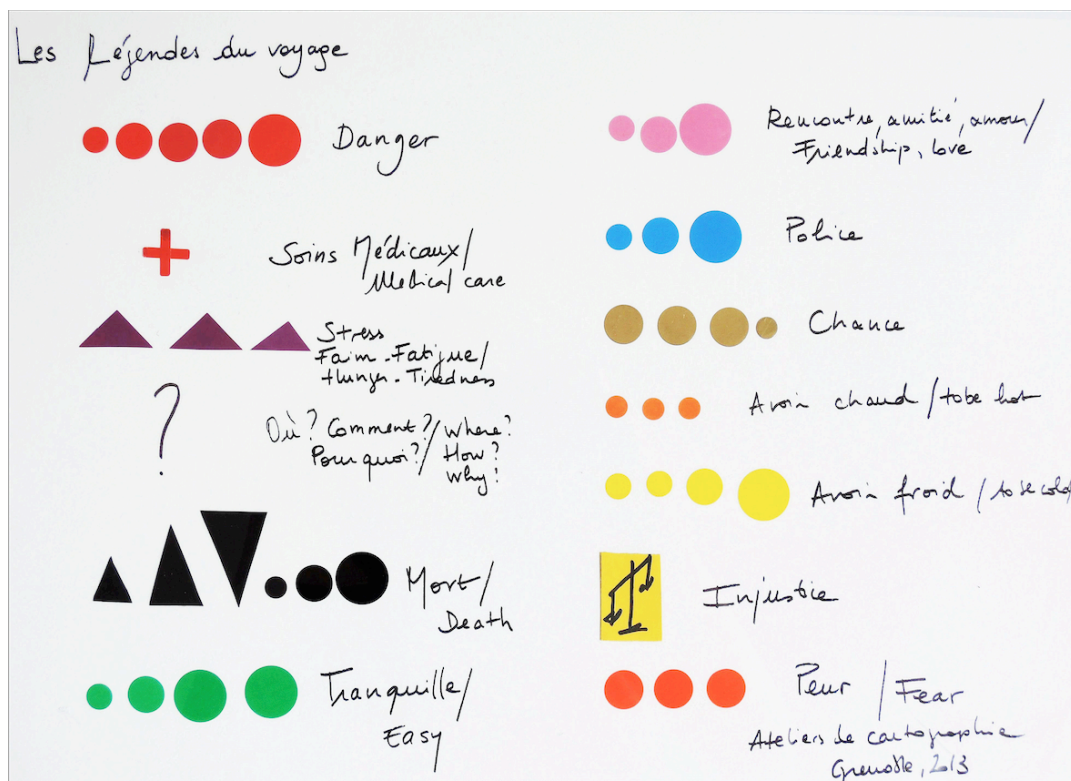 Les Légendes du voyage
Danger
Soins Médicaux/
Medical care
Stress
Faim-Fatigue/
Hunger-Tiredness
?
Où? Comment?/Where?
Pourquoi?/How?
Why?
Mort/
Death
Tranquille/
Easy
Rencontre, amitié, amour/
Friendship, love
Police
Chance
Avoir chaud/to be hot
Avoir froid/to be cold/
Injustice
Peur / Fear
Ateliers de cartographie
Grenoble, 2013